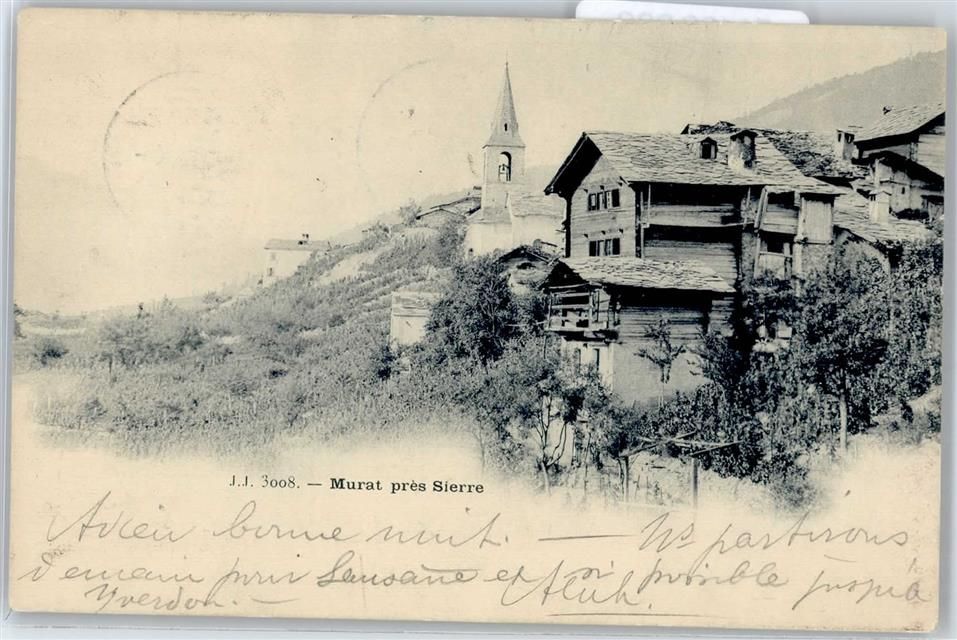 J.J. 3008. – Murat près Sierre
Adieu bonne nuit. — Ns partirons
demain pour Lausane et si possible jusqu'à
Yverdon. —